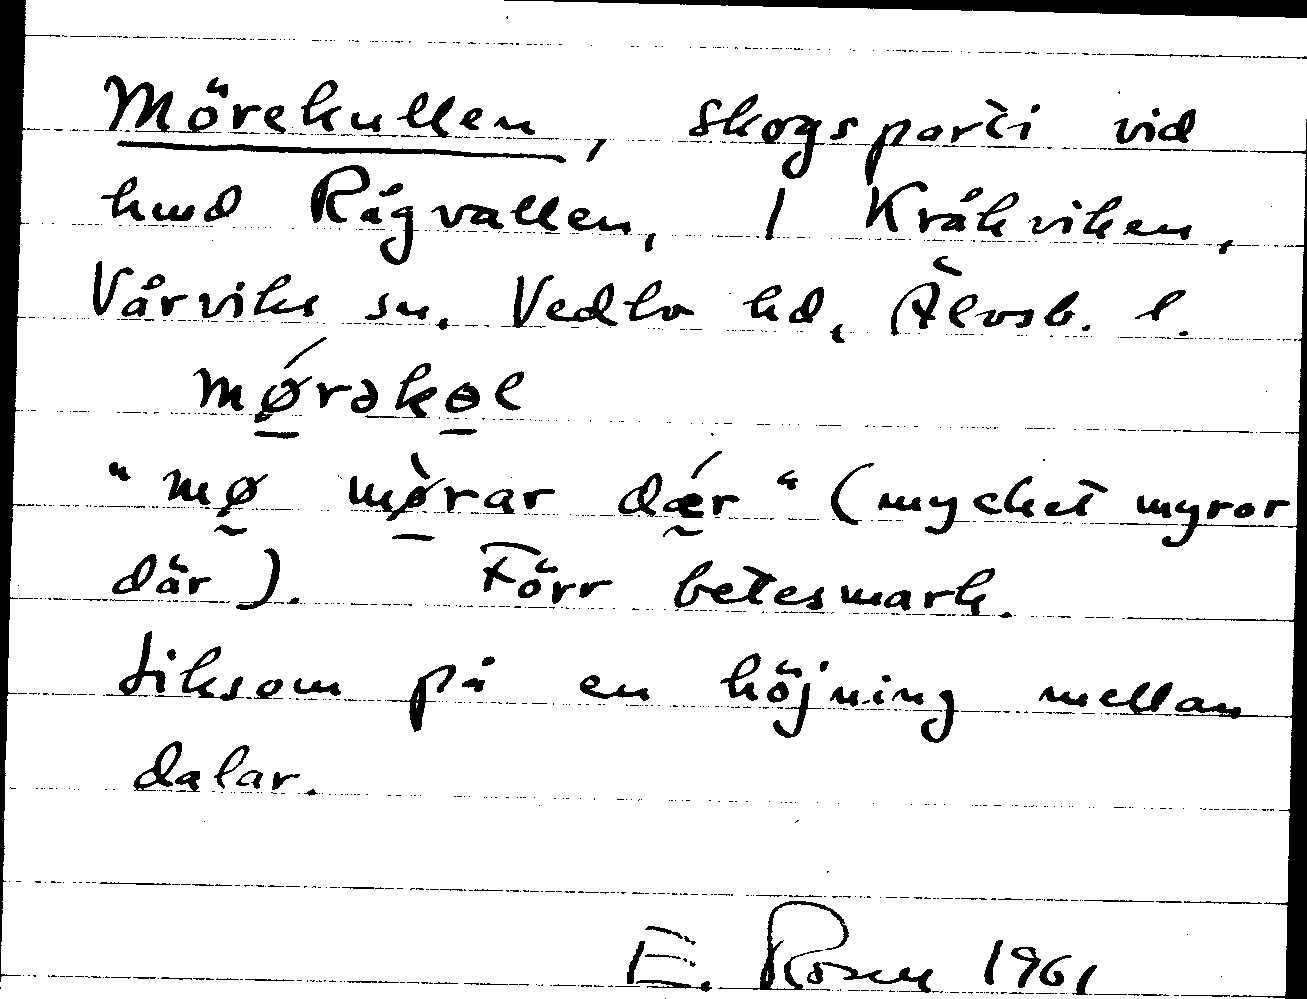 Mörekullen, skogsparti vid
hmd Rågvallen, 1 Kråkviken,
Vårviks sn. Vedbo hd, Älvsb. l.
mǿ̱rəkɵ̱l
"mø̰ mø̱̀rar dǽ̰r" (mycket myror
där). Förr betesmark.
Liksom på en höjning mellan
dalar.
E. Rosell 1961